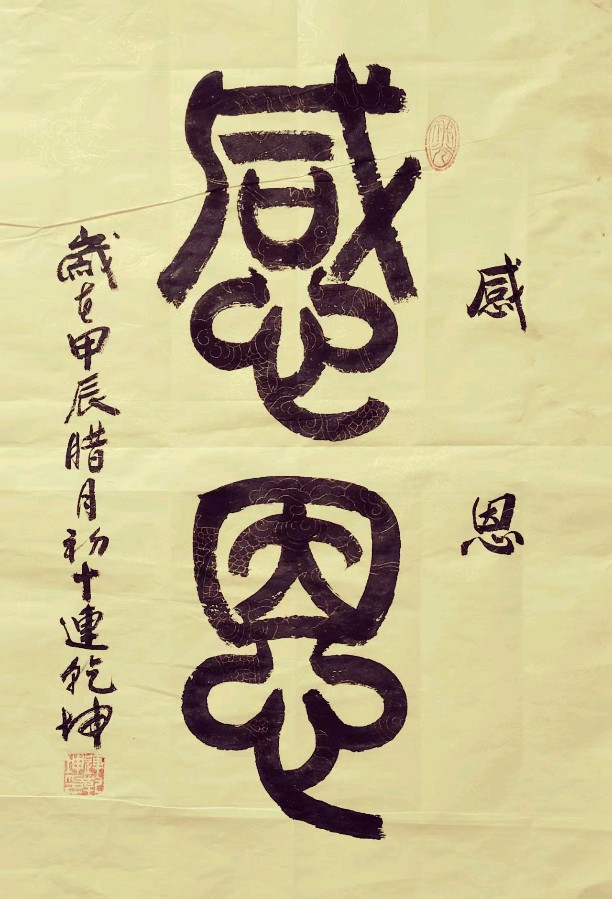 感恩
感恩
歲在甲辰腊月初十連乾坤